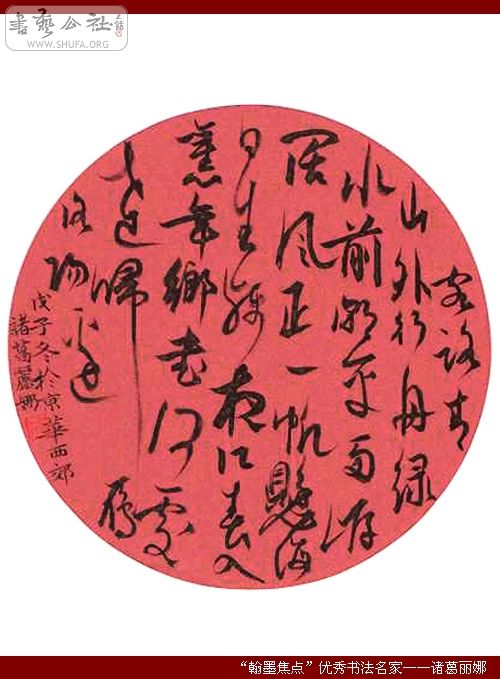 書藝公社
WWW.SHUFA.ORG
客路青
山外行舟绿
水前潮平两岸
阔风正一帆懸海
日生残夜江春入
舊年鄉书何處
达歸雁
洛阳边
戊子冬於京華西郊
諸葛麗娜
“翰墨焦点”优秀书法名家——诸葛丽娜